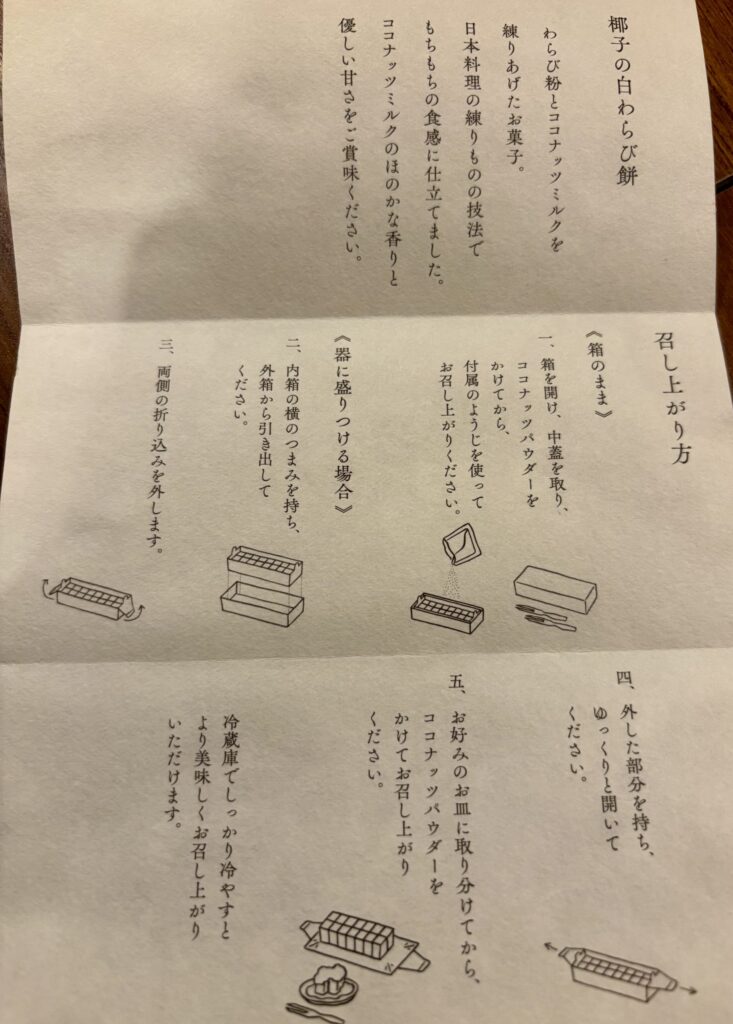 椰子の白わらび餅
わらび粉とココナッツミルクを
練りあげたお菓子。
日本料理の練りものの技法で
もちもちの食感に仕立てました。
ココナッツミルクのほのかな香りと
優しい甘さをご賞味ください。
召し上がり方
《箱のまま》
一、箱を開け、中蓋を取り、
ココナッツパウダーを
かけてから、
付属のようじを使って
お召し上がりください。
《器に盛りつける場合》
二、内箱の横のつまみを持ち、
外箱から引き出して
ください。
三、両側の折り込みを外します。
四、外した部分を持ち、
ゆっくりと開いて
ください。
五、お好みのお皿に取り分けてから、
ココナッツパウダーを
かけてお召し上がり
ください。
冷蔵庫でしっかり冷やすと
より美味しくお召し上がり
いただけます。